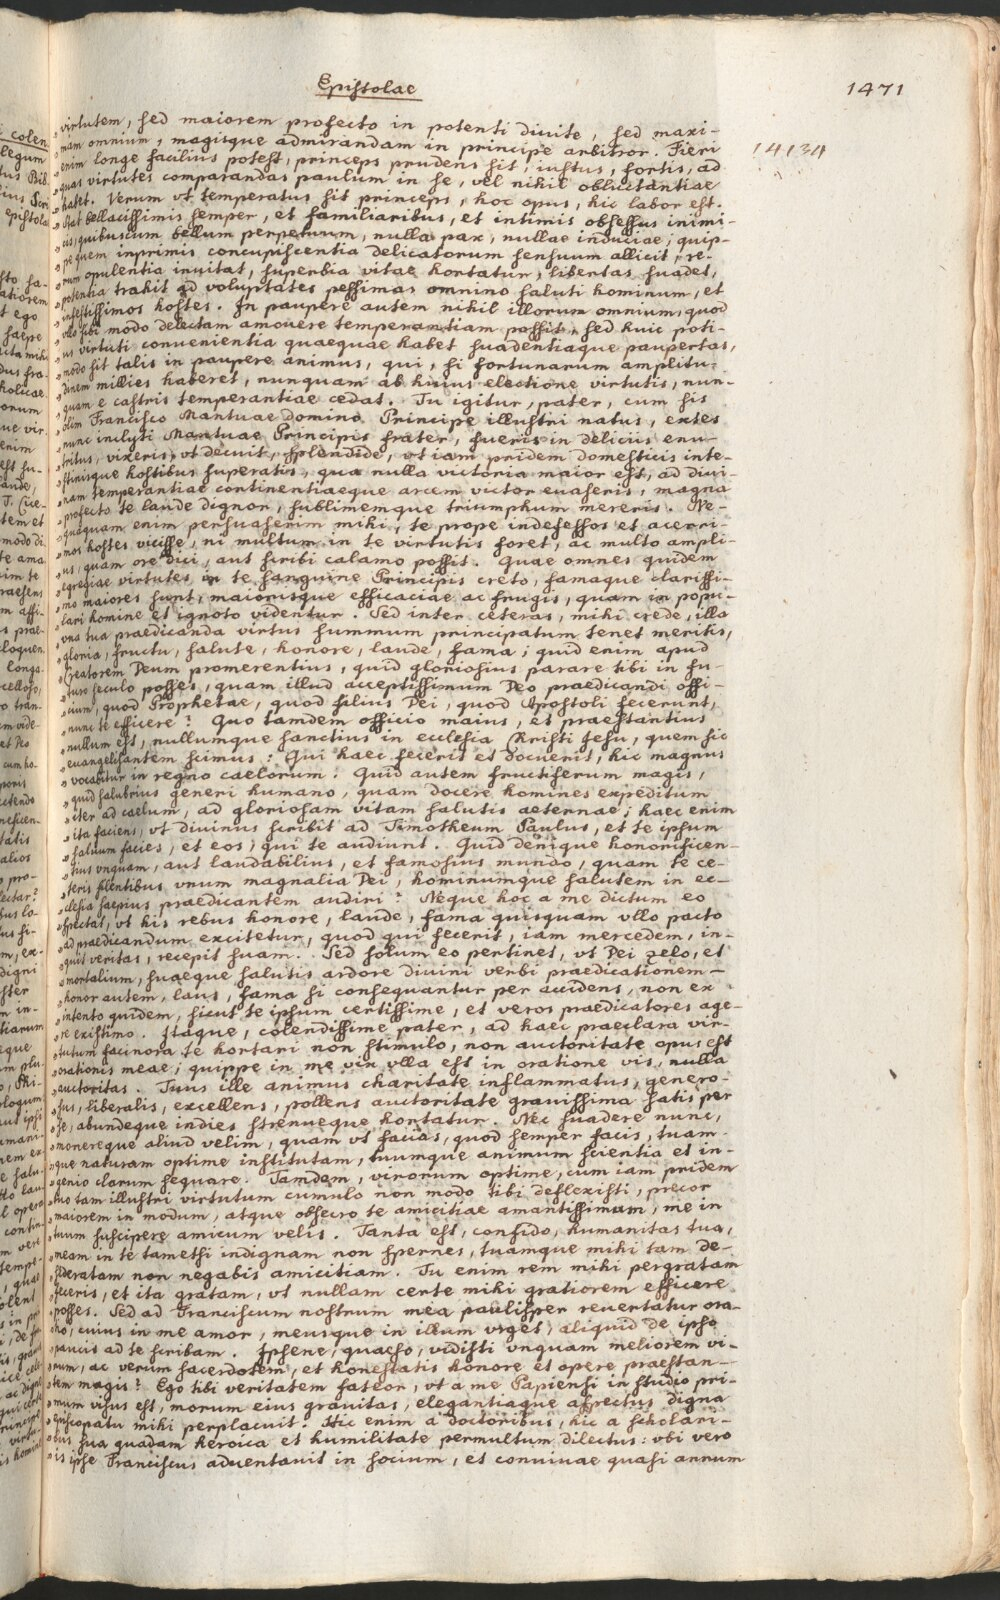 Epistolae
1471
14134
„virtutem, sed maiorem profecto in potenti diuite, sed maxi-
„mam omnium, magisque admirandam in principe arbitror. Fieri
„enim longe facilius potest, princeps prudens sit, iustus, fortis, ad
„quas virtutes comparandas paulum in se, vel nihil obluctantiae
„habet. Verum vt temperatus sit princeps, hoc opus, hic labor est.
„Stat bellacissimis semper, et familiaribus, et intimis obsessus inimi-
„cis, quibuscum bellum perpetuum, nulla pax, nullae induciae, quip-
„pe quem inprimis concupiscentia delicatorum sensuum allicit, re-
„rum opulentia inuitat, superbia vitae hortatur, libertas suadet,
„potentia trahit ad voluptates pessimas omnino saluti hominum, et
„infestissimos hostes. In paupere autem nihil illorum omnium, quod
„vllo sibi modo delectam amouere temperantiam possit, sed huic poti-
„us virtuti conuenientia quaequae habet suadentiaque paupertas,
„modo sit talis in paupere animus, qui, si fortunarum amplitu-
„dinem millies haberet, nunquam ab huius electione virtutis, nun-
„quam e castris temperantiae cedat. Tu igitur, pater, cum sis
„olim Francisco Mantuae domino Principe illustri natus, extes
„nunc inclyti Mantuae Principis frater, fueris in deliciis enu-
„tritus, vixeris, vt decuit, splendide, vt iam pridem domesticis inte-
„stinisque hostibus superatis, qua nulla victoria maior est, ad diui-
„nam temperantiae continentiaeque arcem victor euaseris, magna
„profecto te laude dignor, sublimemque triumphum mereris. Ne-
„quaquam enim persuaserim mihi, te prope indefessos et acerri-
„mos hostes vicisse, ni multum in te virtutis foret, ac multo ampli-
„us, quam ore dici, aut scribi calamo possit. Quae omnes quidem
„egregiae virtutes in te sanguine Principis creto, famaque clarissi-
„mo maiores sunt, maiorisque efficaciae ac frugis, quam in popu-
„lari homine et ignoto videntur. Sed inter ceteras, mihi crede, illa
„vna tua praedicanda virtus summum principatum tenet meritis,
„gloria, fructu, salute, honore, laude, fama; quid enim apud
„Creatorem Deum promerentius, quid gloriosius parare tibi in fu-
„turo seculo posses, quam illud acceptissimum Deo praedicandi offi-
„cium, quod Prophetae, quod filius Dei, quod Apostoli fecerunt,
„nunc te efficere? Quo tamdem officio maius, et praestantius
„nullum est, nullumque sanctius in ecclesia Christi Jesu, quem sic
„euangelisantem scimus: Qui haec fecerit et docuerit, hic magnus
„vocabitur in regno caelorum. Quid autem fructiferum magis,
„quid salubrius generi humano, quam docere homines expeditum
„iter ad caelum, ad gloriosam vitam salutis aeternae; haec enim
„ita faciens, vt diuinus scribit ad Timotheum Paulus, et te ipsum
„saluum facies, et eos, qui te audiunt. Quid denique honorificen-
„tius vnquam, aut laudabilius, et famosius mundo, quam te ce-
„teris silentibus vnum magnalia Dei, hominumque salutem in ec-
„clesia saepius praedicantem audiri? Neque hoc a me dictum eo
„spectat, vt his rebus honore, laude, fama quisquam vllo pacto
„ad praedicandum excitetur, quod qui fecerit, iam mercedem, in-
„quit veritas, recepit suam. Sed solum eo pertinet, vt Dei zelo, et
„mortalium, suaeque salutis ardore diuini verbi praedicationem –
„honor autem, laus, fama si consequantur per accidens, non ex
„intento quidem, sicut te ipsum certissime, et veros praedicatores age-
„re existimo. Itaque, colendissime pater, ad haec praeclara vir-
„tutum facinora te hortari non stimulo, non auctoritate opus est
„orationis meae; quippe in me vix vlla est in oratione vis, nulla
„auctoritas. Tuus ille animus charitate inflammatus, genero-
„sus, liberalis, excellens, pollens auctoritate grauissima satis per
„se, abundeque indies strenueque hortatur. Nec suadere nunc,
„monereque aliud velim, quam vt facias, quod semper facis, tuam-
„que naturam optime institutam, tuumque animum scientia et in-
„genio clarum sequare. Tamdem, virorum optime, cum iam pridem
„tuo tam illustri virtutum cumulo non modo tibi deflexisti, precor
„maiorem in modum, atque obsecro te amicitiae amantissimum, me in
„tuum suscipere amicum velis. Tanta est, confido, humanitas tua,
„meam in te tametsi indignam non spernes, tuamque mihi tam de-
„sideratam non negabis amicitiam. Tu enim rem mihi pergratam
„feceris, et ita gratam, vt nullam certe mihi gratiorem efficere
„posses. Sed ad Franciscum nostrum mea paulisper reuertatur ora-
„tio, cuius in me amor, meusque in illum vrget, aliquid de ipso
„paucis ad te scribam. Ipsene, quaeso, vidisti vnquam meliorem vi-
„rum, ac verum sacerdotem, et honestatis honore et opere praestan-
„tem magis? Ego tibi veritatem fateor, vt a me Papiensi in studio pri-
„mum visus est, morum eius grauitas, elegantiaque aspectus digna
„episcopatu mihi perplacuit. Hic enim a doctoribus, hic a scholari-
„bus sua quadam heroica et humilitate permultum dilectus: vbi vero
„is ipse Franciscus aduentauit in socium, et conuiuae quasi annum